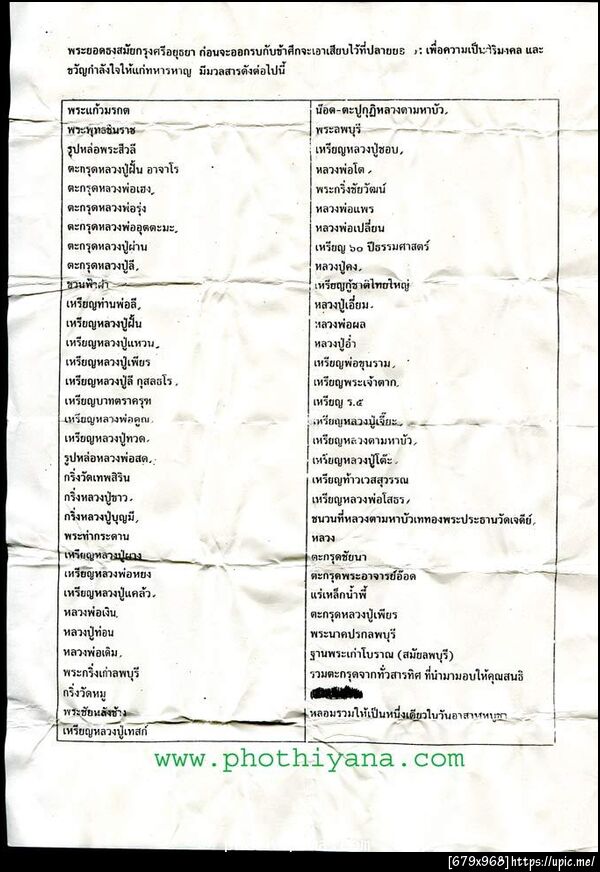 พระยอดธงสมัยกรุงศรีอยุธยา ก่อนจะออกรบกับข้าศึกจะเอาเสียบไว้ที่ปลาย เพื่อความเป็นสิริมงคล และ
ขวัญกำลังใจให้แก่ทหารหาญ มีมวลสารดังต่อไปนี้
พระแก้วมรกต
พระพุทธชินราช
รูปหล่อพระสีวลี
ตะกรุดหลวงปู่ฝั้น อาจาโร
ตะกรุดหลวงพ่อเฮง,
ตะกรุดหลวงพ่อรุ่ง
ตะกรุดหลวงพ่ออุตตะมะ,
ตะกรุดหลวงปู่ผ่าน
ตะกรุดหลวงปู่ลี,
ชวนฟ้าผ่า
เหรียญท่านพ่อลี,
เหรียญหลวงปู่ฝั้น
เหรียญหลวงปู่แหวน,
เหรียญหลวงปู่เพียร
เหรียญหลวงปู่ลี กุสลธโร,
เหรียญบาทตราครุฑ
เหรียญหลวงพ่อคูณ,
เหรียญหลวงปู่ทวด,
รูปหล่อหลวงพ่อสด,
กริ่งวัดเทพสิริน
กริ่งหลวงปู่ขาว,
กริ่งหลวงปู่บุญมี,
พระท่ากระดาน
เหรียญหลวงปู่ผาง
เหรียญหลวงพ่อหยง
เหรียญหลวงปู่แคล้ว,
หลวงพ่อเงิน,
หลวงปู่ท่อน
หลวงพ่อเดิม,
พระกริ่งเก่าลพบุรี
กริ่งวัดหมู
พระชัยหลังช้าง
เหรียญหลวงปู่เทสก์
น๊อต-ตะปูกุฏิหลวงตามหาบัว,
พระลพบุรี
เหรียญหลวงปู่ชอบ,
หลวงพ่อโต,
พระกริ่งชัยวัฒน์
หลวงพ่อแพร
หลวงพ่อเปลี่ยน
เหรียญ ๖๐ ปีธรรมศาสตร์
หลวงปู่คง,
เหรียญกู้ชาติไทยใหญ่
หลวงปู่เอี่ยม,
หลวงพ่อผล
หลวงปู่อ่ำ
เหรียญพ่อขุนราม,
เหรียญพระเจ้าตาก,
เหรียญ ร.๕
เหรียญหลวงปู่เจี๊ยะ,
เหรียญหลวงตามหาบัว,
เหรียญหลวงปู่โต๊ะ,
เหรียญท้าวเวสสุวรรณ
เหรียญหลวงพ่อโสธร,
ชนวนที่หลวงตามหาบัวเททองพระประธานวัดเจดีย์,
หลวง
ตะกรุดชัยนา
ตะกรุดพระอาจารย์อ๊อด
แร่เหล็กน้ำพี้
ตะกรุดหลวงปู่เพียร
พระนาคปรกลพบุรี
ฐานพระเก่าโบราณ (สมัยลพบุรี)
รวมตะกรุดจากทั่วสารทิศ ที่นำมามอบให้คุณสนธิ
หลอมรวมให้เป็นหนึ่งเดียวในวันอาสาฬหบูชา
www.phothiyana.com
[679x968]https://upic.me/